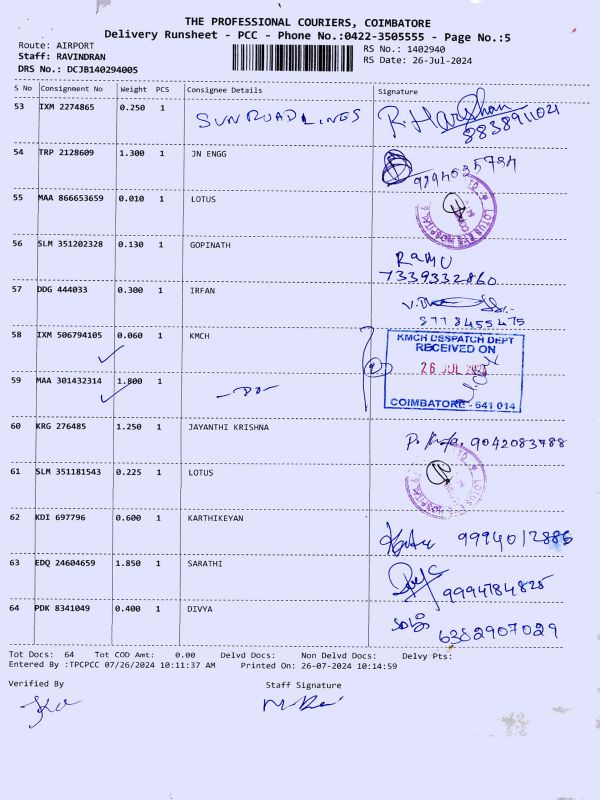 THE PROFESSIONAL COURIERS, COIMBATORE
Delivery Runsheet - PCC - Phone No.:0422-3505555 - Page No.:5
Route: AIRPORT
Staff: RAVINDRAN
DRS No.: DCJB140294005
RS No.: 1402940
RS Date: 26-Jul-2024
S No Consignment No Weight PCS Consignee Details Signature
53 IXM 2274865 0.250 1 SUN ROAD LINES R. Harshan
8838911021
54 TRP 2128609 1.300 1 JN ENGG
55 MAA 866653659 0.010 1 LOTUS LOTUS EYE HOSPITAL
56 SLM 351202328 0.130 1 GOPINATH RAMU
7339332860
57 DDG 444033 0.300 1 IRFAN
8778455475
58 IXM 506794105 0.060 1 KMCH KMCH DESPATCH DEPT
RECEIVED ON
26 JUL
59 MAA 301432314 1.800 1 -DO-
COIMBATORE - 641 014
60 KRG 276485 1.250 1 JAYANTHI KRISHNA 9042083788
61 SLM 351181543 0.225 1 LOTUS LOTUS EYE HOSPITAL
62 KDI 697796 0.600 1 KARTHIKEYAN 9994012886
63 EDQ 24604659 1.850 1 SARATHI 9994784825
64 PDK 8341049 0.400 1 DIVYA 6382907029
Tot Docs: 64 Tot COD Amt: 0.00 Delvd Docs: Non Delvd Docs: Delvy Pts:
Entered By :TPCPCC 07/26/2024 10:11:37 AM Printed On: 26-07-2024 10:14:59
Verified By Staff Signature